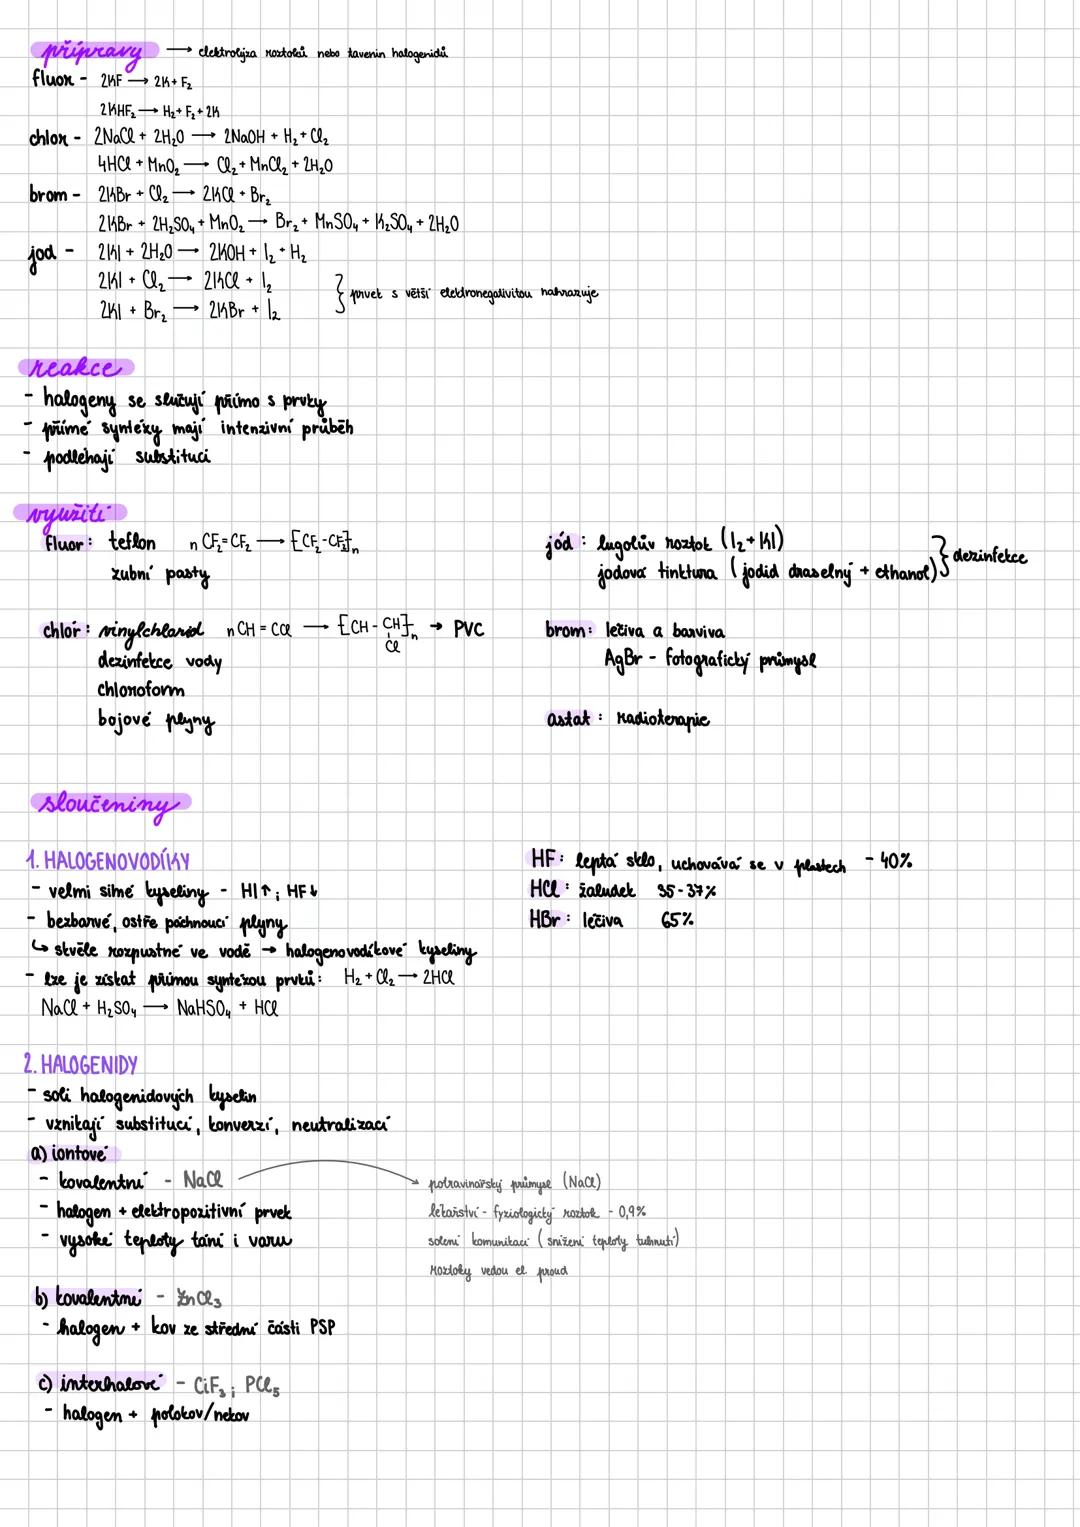 přípravy → elektrolýza roztoků nebo tavenin halogenidů
fluor - 2KF → 2K + F₂
2KHF₂ → H₂ + F₂ + 2K
chlor - 2NaCl + 2H₂O → 2NaOH + H₂ + Cl₂
4HCl + MnO₂ → Cl₂ + MnCl₂ + 2H₂O
brom - 2KBr + Cl₂ → 2KCl + Br₂
2KBr + 2H₂SO₄ + MnO₂ → Br₂ + MnSO₄ + K₂SO₄ + 2H₂O
jod - 2KI + 2H₂O → 2KOH + I₂ + H₂
2KI + Cl₂ → 2KCl + I₂
2KI + Br₂ → 2KBr + I₂
} prvek s větší elektronegativitou nahrazuje
reakce
- halogeny se slučují přímo s prvky
- přímé syntézy mají intenzivní průběh
- podléhají substituci
využití
fluor: teflon n CF₂=CF₂ → [CF₂-CF₂]ₙ
zubní pasty
chlór: vinylchlorid n CH = CCl → [CH - CH]ₙ → PVC
Cl
dezinfekce vody
chloroform
bojové plyny
jód: lugolův roztok (I₂ + KI)
jodová tinktura (jodid draselný + ethanol) } dezinfekce
brom: léčiva a barviva
AgBr - fotografický průmysl
astat: radioterapie
sloučeniny
1. HALOGENOVODÍKY
- velmi silné kyseliny - HI↑; HF↓
- bezbarvé, ostře páchnoucí plyny
↳ skvěle rozpustné ve vodě → halogenovodíkové kyseliny
- lze je získat přímou syntézou prvků: H₂ + Cl₂ → 2HCl
NaCl + H₂SO₄ → NaHSO₄ + HCl
HF: leptá sklo, uchovává se v plastech - 40%
HCl: žaludek 35-37%
HBr: léčiva 65%
2. HALOGENIDY
- soli halogenidových kyselin
- vznikají substitucí, konverzí, neutralizací
a) iontové
- kovalentní - NaCl
- halogen + elektropozitivní prvek
- vysoké teploty tání i varu
potravinářský průmysl (NaCl)
lékařství - fyziologický roztok - 0,9%
solení komunikací (snížení teploty tuhnutí)
roztoky vedou el. proud
b) kovalentní - ZnCl₃
- halogen + kov ze střední části PSP
c) interhalové - CiF₃; PCl₅
- halogen + polokov/nekov